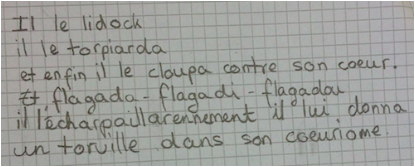 Il le lidock
il le torpiarda
et enfin il le claupa contre son coeur.
Et flagada - flagadi - flagadou
il l'écharpaillarennement il lui donna
un torville dans son coeuriome.